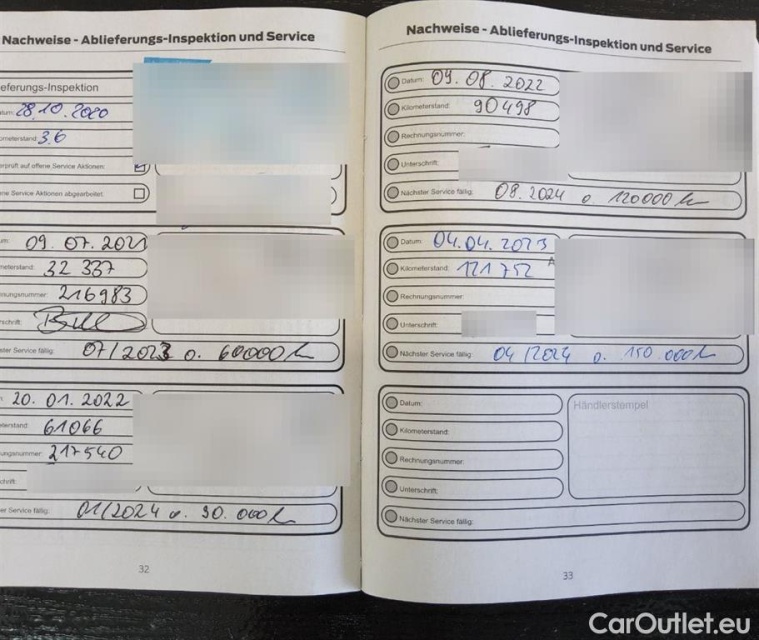 Nachweise - Ablieferungs-Inspektion und Service
eferungs-Inspektion
tum: 28.10.2020
ometerstand 3.6
erprüft auf offene Service Aktionen:
ene Service Aktionen abgearbeitet:
um: 09.07.2021
meterstand: 32 337
nungsnummer: 216983
rschrift:
ster Service fällig: 07/2023 o. 60000 k
: 20. 01. 2022
eterstand: 61066
ungsnummer: 217540
chrift:
er Service fällig: 01/2024 o. 90. 000 k
32
Nachweise - Ablieferungs-Inspektion und Service
Datum: 09. 08. 2022
Kilometerstand: 90498
Rechnungsnummer:
Unterschrift:
Nächster Service fällig: 08.2024 o 120000 k
Datum: 04.04.2023
Kilometerstand: 121 752
Rechnungsnummer:
Unterschrift:
Nächster Service fällig: 04/2024 o. 150 000 k
Datum:
Händlerstempel
Kilometerstand:
Rechnungsnummer:
Unterschrift:
Nächster Service fällig:
33
CarOutlet.eu